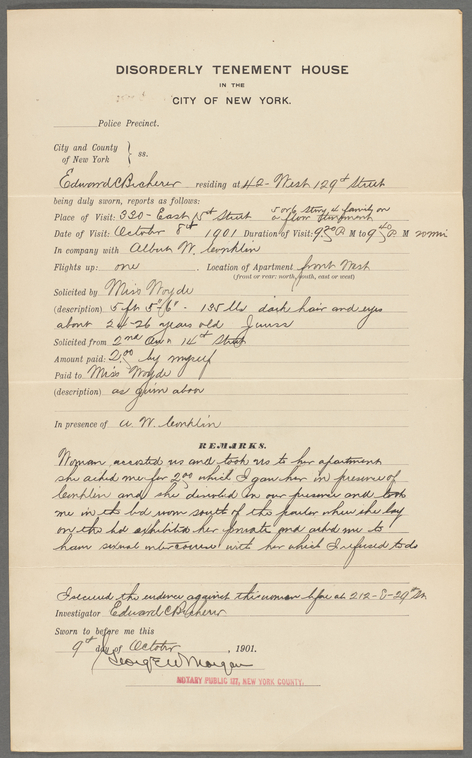 DISORDERLY TENEMENT HOUSE
IN THE
CITY OF NEW YORK.
Police Precinct.
City and County
of New York } ss.
Edward C Becherer residing at 42 - West 129th Street
being duly sworn, reports as follows:
Place of Visit: 330 - East 15th Street 5 or 6 story 4 family on
a floor tenement
Date of Visit: October 8th 1901 Duration of Visit: 9 20 P M to 9 40 P M 20 min
In company with Albert W. Conklin
Flights up: one Location of Apartment front West
(front or rear: north, south, east or west)
Solicited by Miss Woyde
(description) 5 ft 5"6" - 135 lbs dark hair and eyes
about 24-26 years old
Solicited from 2nd Ave & 14th Street
Amount paid: 2.00 by myself
Paid to Miss Woyde
(description) as given above
In presence of A. W. Conklin
REMARKS.
Woman accosted us and took us to her apartment
she asked me for 2.00 which I gave her in presence of
Conklin and she disrobed in our presence and took
me in the bed room south of the parlor where she lay
on the bed exhibited her private and asked me to
have sexual intercourse with her which I refused to do
I secured the evidence against this woman before at 212-E-29th St
Investigator Edward C Becherer
Sworn to before me this
9th day of October, 1901.
George W Morgan
NOTARY PUBLIC 117, NEW YORK COUNTY.